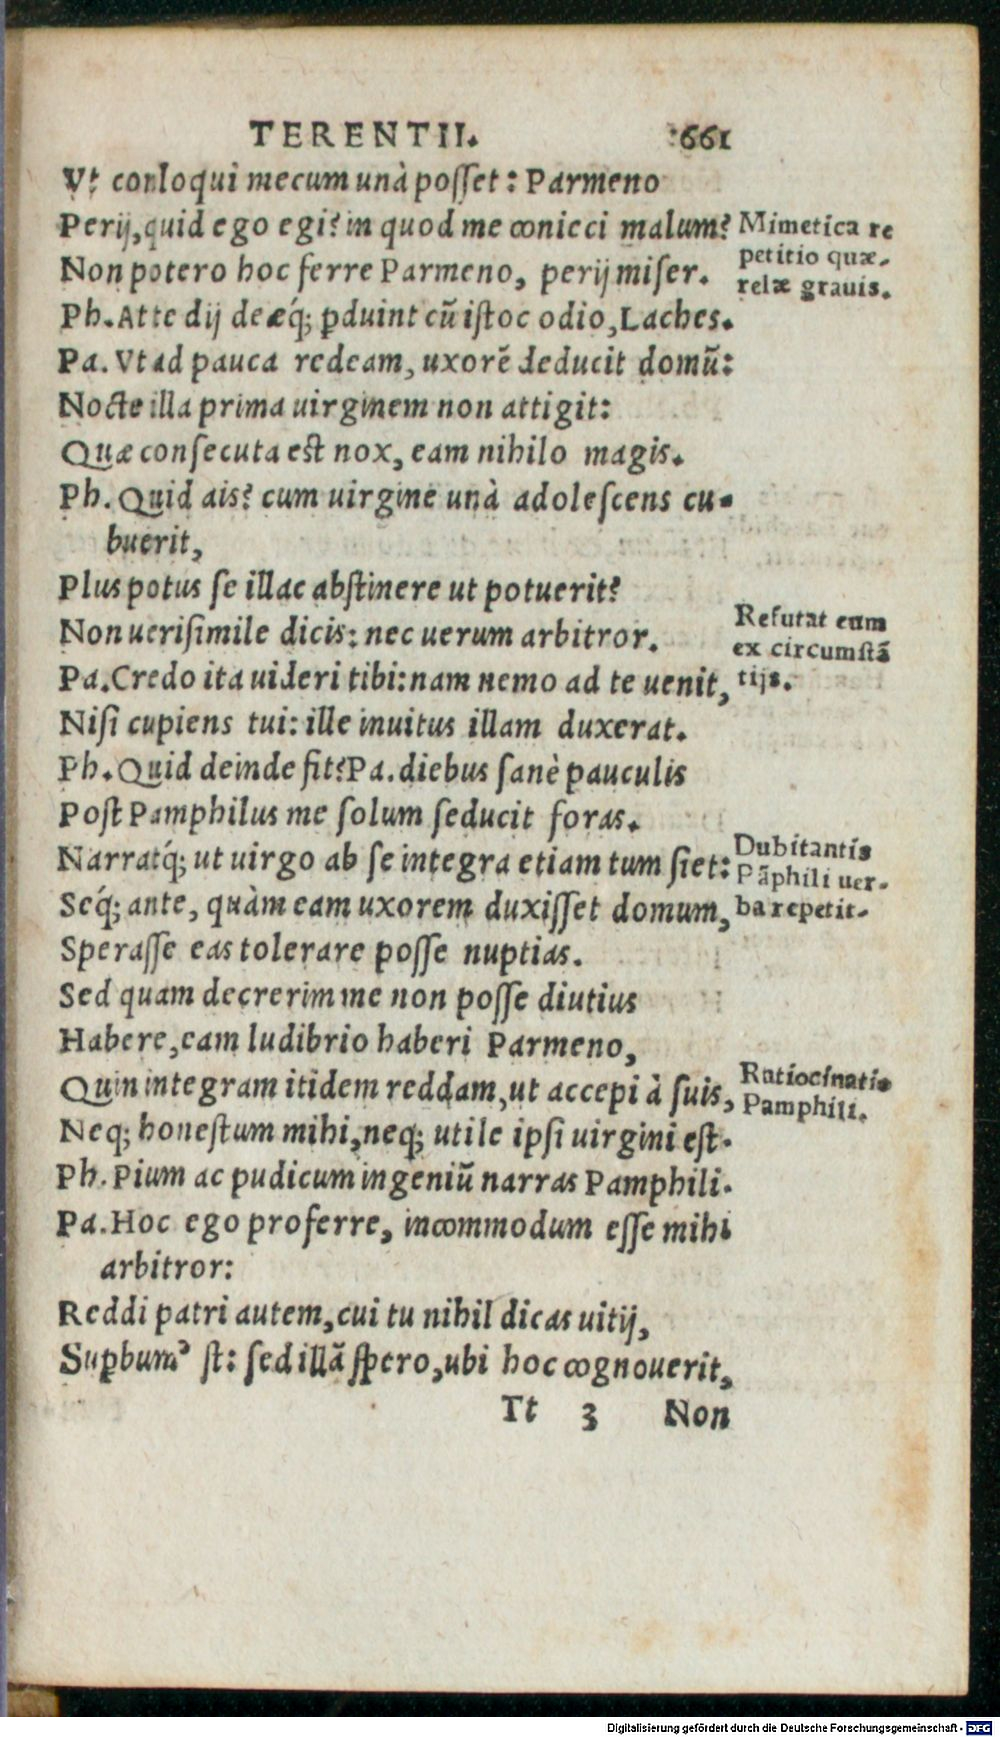 TERENTII. 661
Vt conloqui mecum unà posset: Parmeno
Perij, quid ego egi? in quod me conieci malum?
Mimetica re
Non potero hoc ferre Parmeno, perij miser.
petitio quæ-
relæ grauis.
Ph. At te dij deæq́; ꝑduint cũ istoc odio, Laches.
Pa. Vt ad pauca redeam, uxorẽ deducit domũ:
Nocte illa prima uirginem non attigit:
Quæ consecuta est nox, eam nihilo magis.
Ph. Quid ais? cum uirgine unà adolescens cu-
buerit,
Plus potus se illac abstinere ut potuerit?
Non uerisimile dicis: nec uerum arbitror.
Refutat eum
ex circumstã
tijs.
Pa. Credo ita uideri tibi: nam nemo ad te uenit,
Nisi cupiens tui: ille inuitus illam duxerat.
Ph. Quid deinde fit? Pa. diebus sanè pauculis
Post Pamphilus me solum seducit foras.
Narratq́; ut uirgo ab se integra etiam tum siet:
Dubitantis
Pãphili uer-
ba repetit.
Seq́; ante, quàm eam uxorem duxisset domum,
Sperasse eas tolerare posse nuptias.
Sed quam decrerim me non posse diutius
Habere, eam ludibrio haberi Parmeno,
Quin integram itidem reddam, ut accepi à suis,
Ratiocinatio
Pamphili.
Neq; honestum mihi, neq; utile ipsi uirgini est.
Ph. Pium ac pudicum ingeniũ narras Pamphili.
Pa. Hoc ego proferre, incommodum esse mihi
arbitror:
Reddi patri autem, cui tu nihil dicas uitij,
Suꝑbumꝰ st: sed illã spero, ubi hoc cognouerit,
Tt 3 Non
Digitalisierung gefördert durch die Deutsche Forschungsgemeinschaft - DFG